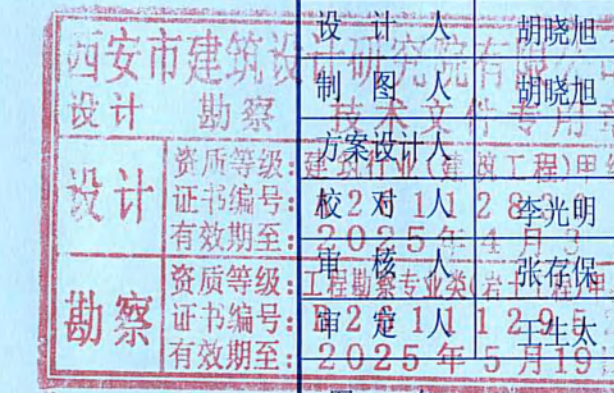 西安市建筑设计研究院有限公
设计 勘察 技术文件专用章
设计
资质等级：建筑行业(建筑工程)甲级
证书编号：
有效期至：2025年4月3
勘察
资质等级：工程勘察专业类(岩土工程)甲
证书编号：B261111295
有效期至：2025年5月19
设计人 胡晓旭
制图人 胡晓旭
方案设计人
校对人 李光明
审核人 张存保
审定人 王生太